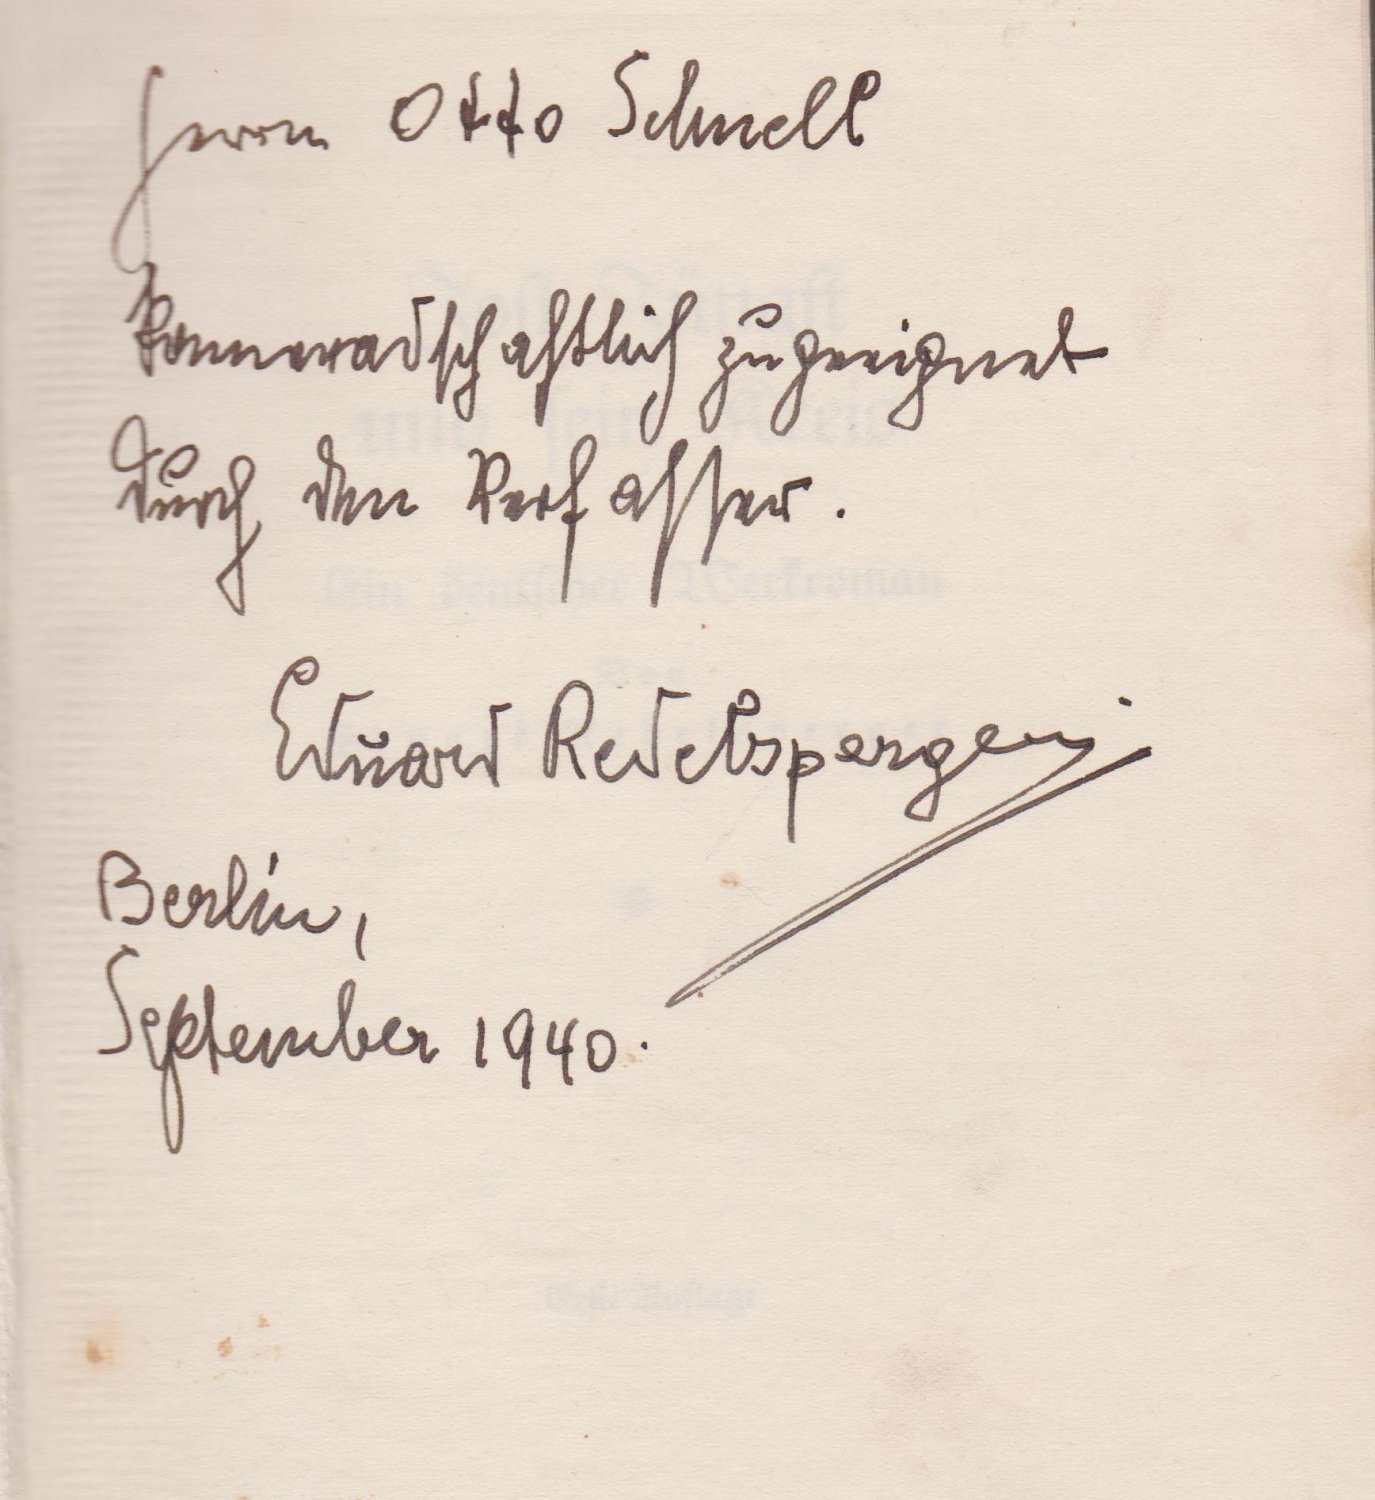 Herrn Otto Schnell
kameradschaftlich zugeeignet
durch den Verfasser.
Eduard Redelsperger
Berlin,
September 1940.